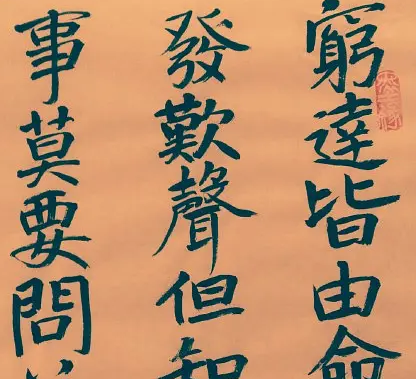 窮達皆由命
發歎聲但知
事莫要問